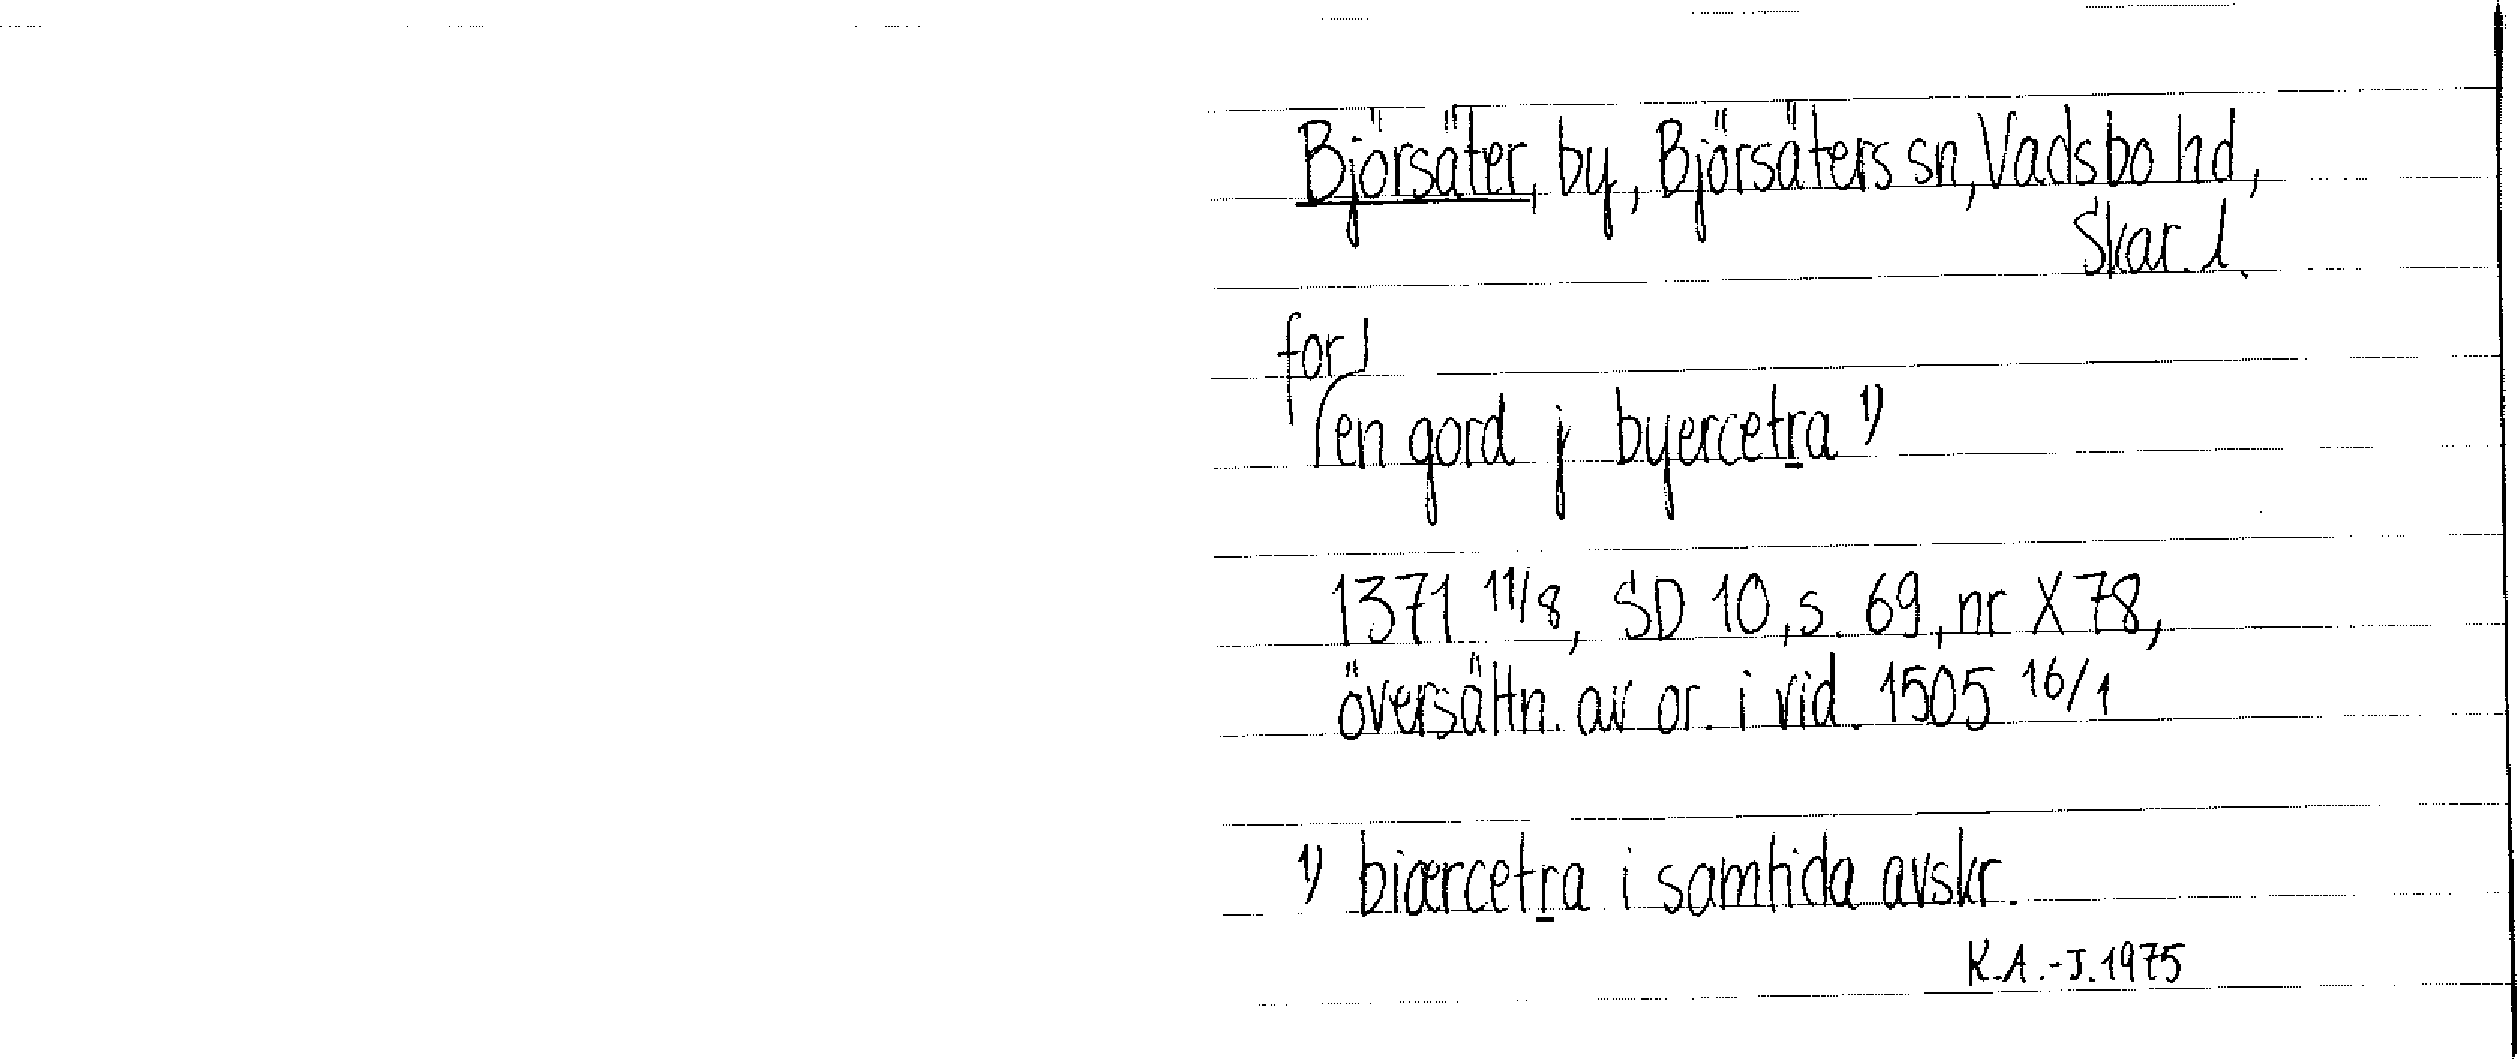 Björsäter, by, Björsäters sn, Vadsbo hd,
Skar. l.
for
en gord j byercetra 1)
1371 11/8, SD 10, s. 69, nr X 78,
översättn. av or. i vid. 1505 16/1
1) biærcetra i samtida avskr.
K.A.-I. 1975